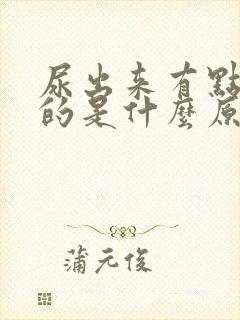 尿出来有點
的是什麼原
蒲元俊